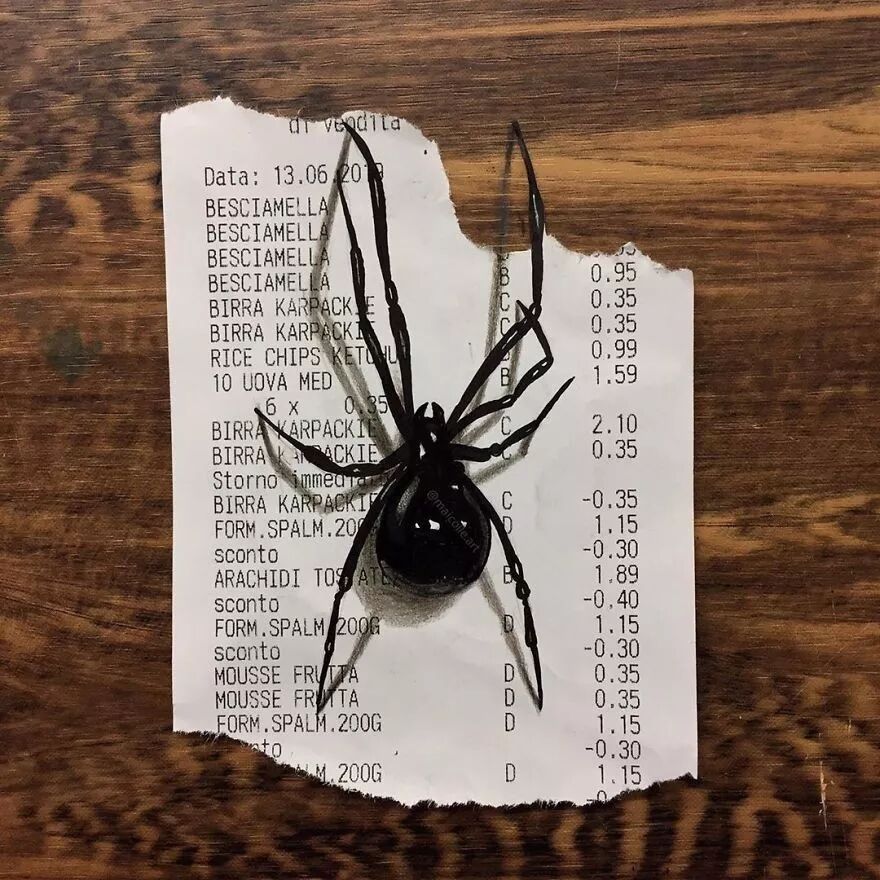 di vendita
Data: 13.06.2019
BESCIAMELLA
BESCIAMELLA
BESCIAMELLA
BESCIAMELLA B 0.95
BIRRA KARPACKIE C 0.35
BIRRA KARPACKIE C 0.35
RICE CHIPS 0.99
10 UOVA MED B 1.59
6 x 0.35
BIRRA KARPACKIE C 2.10
BIRRA KARPACKIE C 0.35
Storno
BIRRA KARPACKIE C -0.35
FORM.SPALM.200 D 1.15
sconto -0.30
ARACHIDI TOSTATE B 1.89
sconto -0.40
FORM.SPALM.200G D 1.15
sconto -0.30
MOUSSE FRUTTA D 0.35
MOUSSE FRUTTA D 0.35
FORM.SPALM.200G D 1.15
-0.30
ALM.200G D 1.15